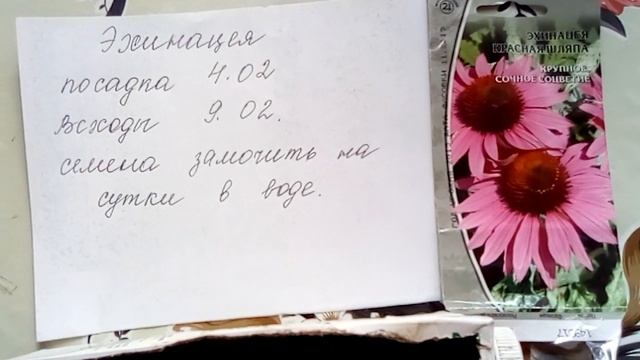 Эхинацея
посадка 4.02
Всходы 9.02.
семена замочить на
сутки в воде.
21
ЭХИНАЦЕЯ
КРАСНАЯ ШЛЯПА
КРУПНОЕ
СОЧНОЕ СОЦВЕТИЕ